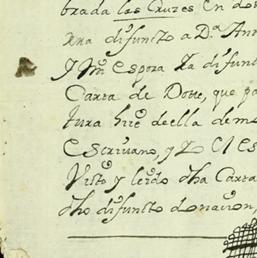 brada las Cruzes en dos
xxa difuncto a D.ª An
y mi espoza Ya difun
Carta de Dotte, que p
tura hize de ella de m
escrivano, y Lo el es
Visto y leido dha Carta
dho difuncto donacion,